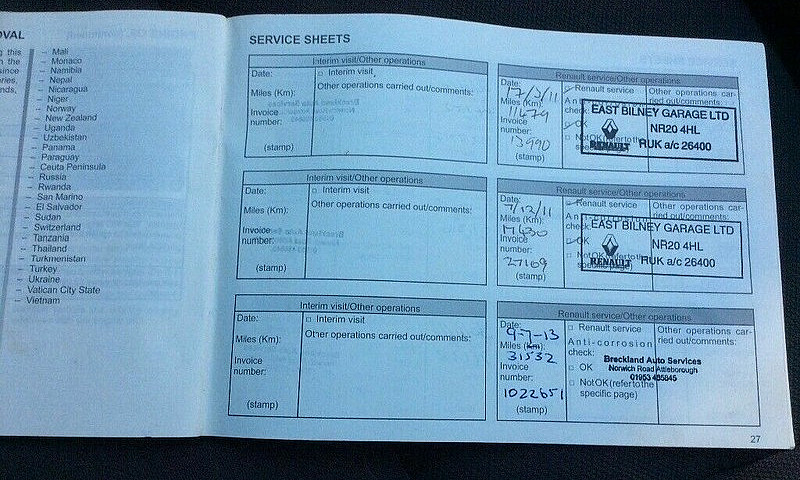 OVAL
g this
n the
since
eries,
nds,
– Mali
– Monaco
– Namibia
– Nepal
– Nicaragua
– Niger
– Norway
– New Zealand
– Uganda
– Uzbekistan
– Panama
– Paraguay
– Ceuta Peninsula
– Russia
– Rwanda
– San Marino
– El Salvador
– Sudan
– Switzerland
– Tanzania
– Thailand
– Turkmenistan
– Turkey
– Ukraine
– Vatican City State
– Vietnam
SERVICE SHEETS
Interim visit/Other operations
Date:
□ Interim visit
Miles (Km):
Other operations carried out/comments:
Invoice
number:
(stamp)
Renault service/Other operations
Date:
17/3/11
Miles (Km):
11479
Invoice
number:
13990
(stamp)
Renault service
Anti
check:
OK
Not OK (refer to the
specific page)
Other operations car-
ried out/comments:
EAST BILNEY GARAGE LTD
NR20 4HL
RENAULT RUK a/c 26400
Interim visit/Other operations
Date:
□ Interim visit
Miles (Km):
Other operations carried out/comments:
Invoice
number:
(stamp)
Renault service/Other operations
Date:
7/12/11
Miles (Km):
Invoice
number:
27169
(stamp)
Renault service
check:
OK
Not OK (refer to the
specific page)
Other operations car-
ried out/comments:
EAST BILNEY GARAGE LTD
NR20 4HL
RENAULT RUK a/c 26400
Interim visit/Other operations
Date:
□ Interim visit
Miles (Km):
Other operations carried out/comments:
Invoice
number:
(stamp)
Renault service/Other operations
Date:
9-7-13
Miles (Km):
31532
Invoice
number:
1022651
(stamp)
□ Renault service
Anti-corrosion
check:
□ OK
□ Not OK (refer to the
specific page)
Other operations car-
ried out/comments:
Breckland Auto Services
Norwich Road Attleborough
01953 455845
27